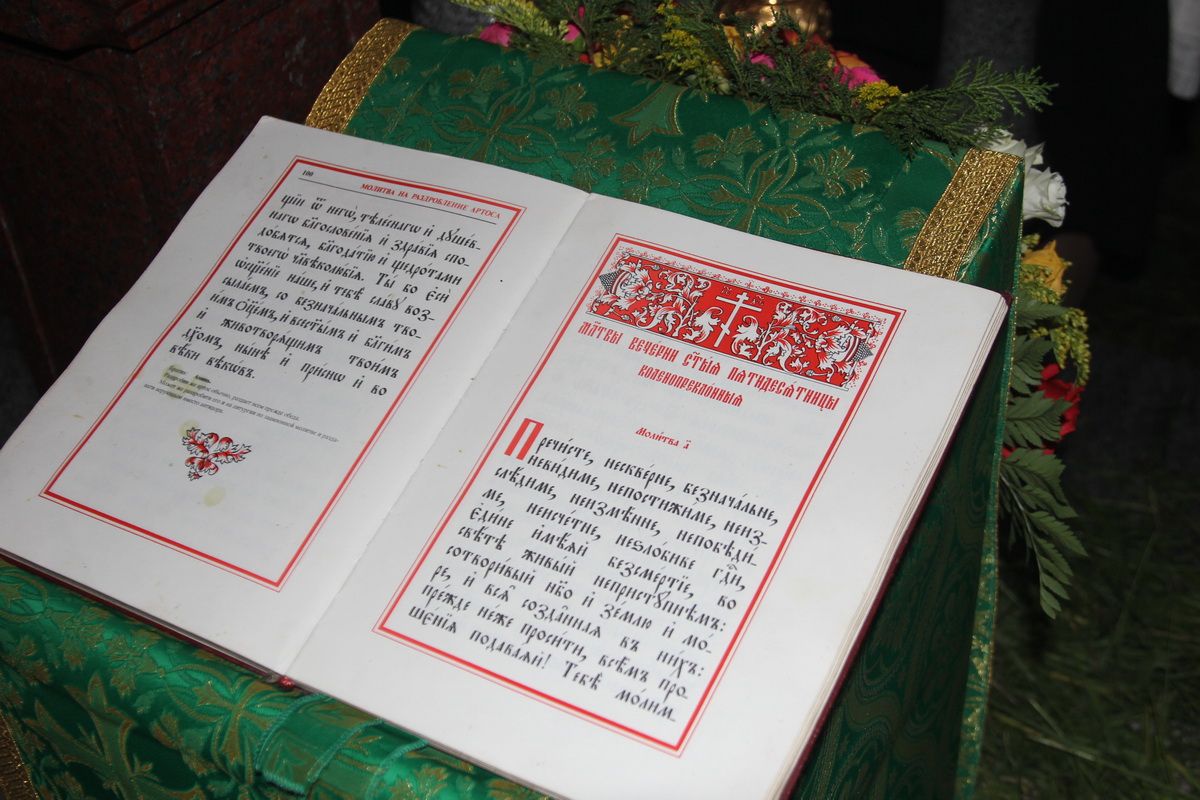 100
МОЛИТВА НА РАЗДРОБЛЕНИЕ АРТОСА
щїи ѿ негѡ̀, тѣле́снагѡ и҆ дꙋше́в-
нагѡ бл҃гослове́нїѧ и҆ здра́вїѧ спо-
до́бѧтсѧ, бл҃года́тїю и҆ щедро́тами
твоегѡ̀ чл҃вѣколю́бїѧ. Ты́ бо є҆сѝ
ѡ҆сщ҃е́нїе на́ше, и҆ тебѣ̀ сла́вꙋ воз-
сыла́емъ, со безнача́льнымъ тво-
и́мъ Оц҃е́мъ, и҆ всест҃ы́мъ и҆ бл҃ги́мъ
и҆ животворѧ́щимъ твои́мъ
дх҃омъ, ны́нѣ и҆ при́снѡ и҆ во
вѣ́ки вѣкѡ́въ.
Аминь.
мл҃твы вече́рни ст҃ы́ѧ пѧтидесѧ́тницы
колѣнопрекло́нныѧ
Моли́тва а҃
Пречи́сте, нескве́рне, безнача́льне,
неви́диме, непостижи́ме, неиз-
слѣ́диме, неизмѣ́нне, непобѣди́-
ме, несче́тне, неѕло́биве гдⷭ҇и,
є҆ди́не и҆мѣ́ѧй безсме́ртїе, во
свѣ́тѣ живы́й непристꙋ́пнѣмъ:
сотвори́вый нб҃о и҆ зе́млю и҆ мо́-
ре, и҆ всѧ̑ созда̑ннаѧ въ ни́хъ:
пре́жде не́же проси́ти, всѣ̑мъ про-
ше́нїѧ подава́ѧй! Тебѣ̀ мо́лимсѧ